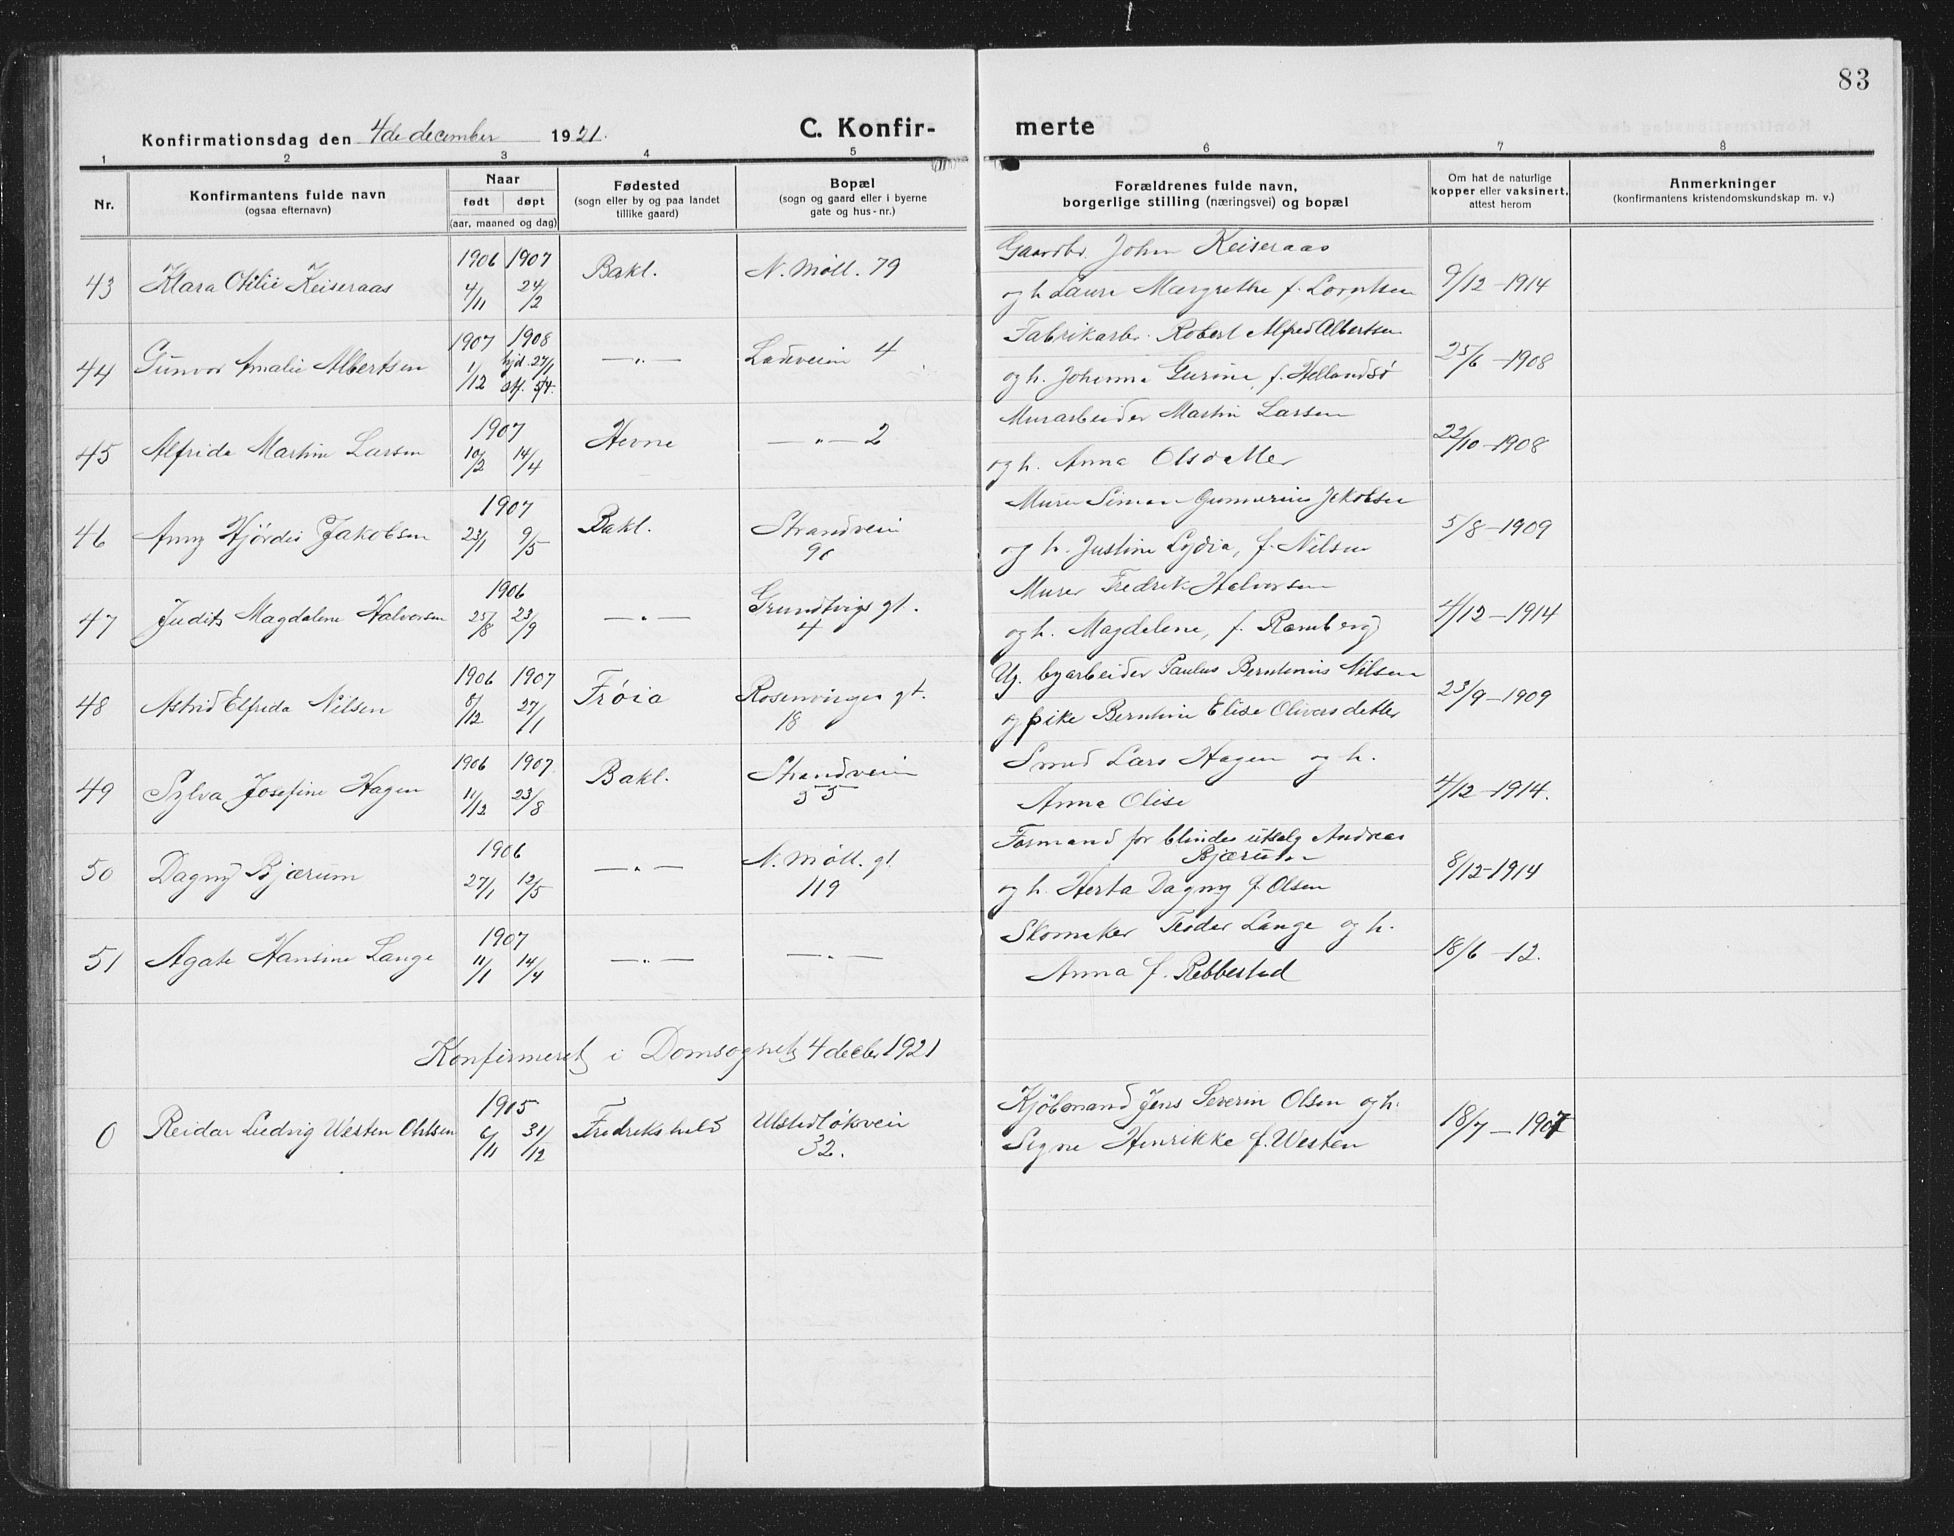 83
Konfirmationsdag den 4de december 1921. C. Konfirmerte
1 2 3 4 5 6 7 8
Nr. Konfirmantens fulde navn (ogsaa efternavn) Naar født døpt (aar, maaned og dag) Fødested (sogn eller by og paa landet tillike gaard) Bopæl (sogn og gaard eller i byerne gate og hus-nr.) Forældrenes fulde navn, borgerlige stilling (næringsvei) og bopæl Om hat de naturlige kopper eller vaksinert, attest herom Anmerkninger (konfirmantens kristendomskundskap m. v.)
1906 1907 Gaardbr. John Keiseraas
43 Klara Otilie Keiseraas 4/11 24/2 Bakl. N. Møll. 79 og h. Laura Margrethe f. Lorntsen 9/12-1914
1907 1908 Fabrikarb. Robert Alfred Albertsen
44 Gunvor Amalie Albertsen 1/12 hjd. 27/1 st. 5/4. —„— Ladeveien 4 og h. Johanna Gurine, f. Hellandsø 25/6-1908
1907 Murarbeider Martin Larsen
45 Alfride Martine Larsen 10/2 14/4 Hevne —„— 2 og h. Anna Olsdatter 22/10-1908
1907 Murer Simon Gunnerius Jakobsen
46 Anny Hjørdis Jakobsen 23/1 9/5 Bakl. Strandveien 96 og h. Justine Lydia, f. Nilsen 5/8-1909
1906 Murer Fredrik Halvorsen
47 Judith Magdalene Halvorsen 25/8 23/9 —„— Grundtvigs gt. 4 og h. Magdalene, f. Ramberg 4/12-1914
1906 1907 Ug. byarbeider Paulus Berntinius Nilsen
48 Astrid Elfrida Nilsen 8/12 27/1 Frøia Rosenvinges gt. 18 og pike Berntine Elise Oliversdatter 23/9-1909
1906 1907 Smed Lars Hagen og h.
49 Sylva Josefine Hagen 11/12 23/8 Bakl. Strandveien 55 Anna Olise 4/12-1914.
1906 Formand for blindes utsalg Andreas Bjærum
50 Dagny Bjærum 27/1 12/5 —„— N. Møll. gt. 119 og h. Herta Dagny f. Olsen 8/12-1914
1907 Skomaker Teodor Lange og h.
51 Agate Hansine Lange 11/1 14/4 —„— —„— Anna f. Rebbestad 18/6-12.
Konfirmeret i Domsognet 4 decbr 1921
1905 Kjøbmand Jens Severin Olsen og h.
0 Reidar Ludvig Westen Ohlsen 6/11 31/12 Fredrikshald Ulstadløkveien 32. Signe Henrikke f. Westen 18/7-1907